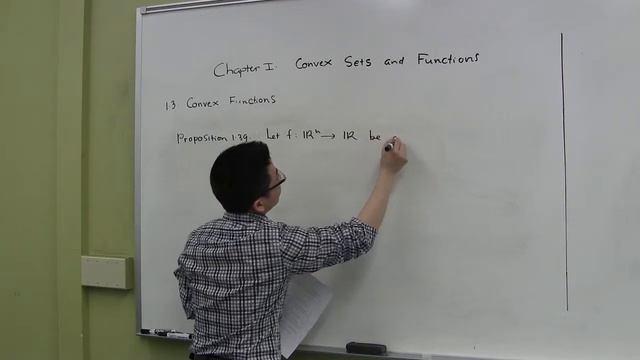 Chapter I. Convex Sets and Functions
1.3 Convex Functions
Proposition 1.39. Let f: ℝⁿ → ℝ be